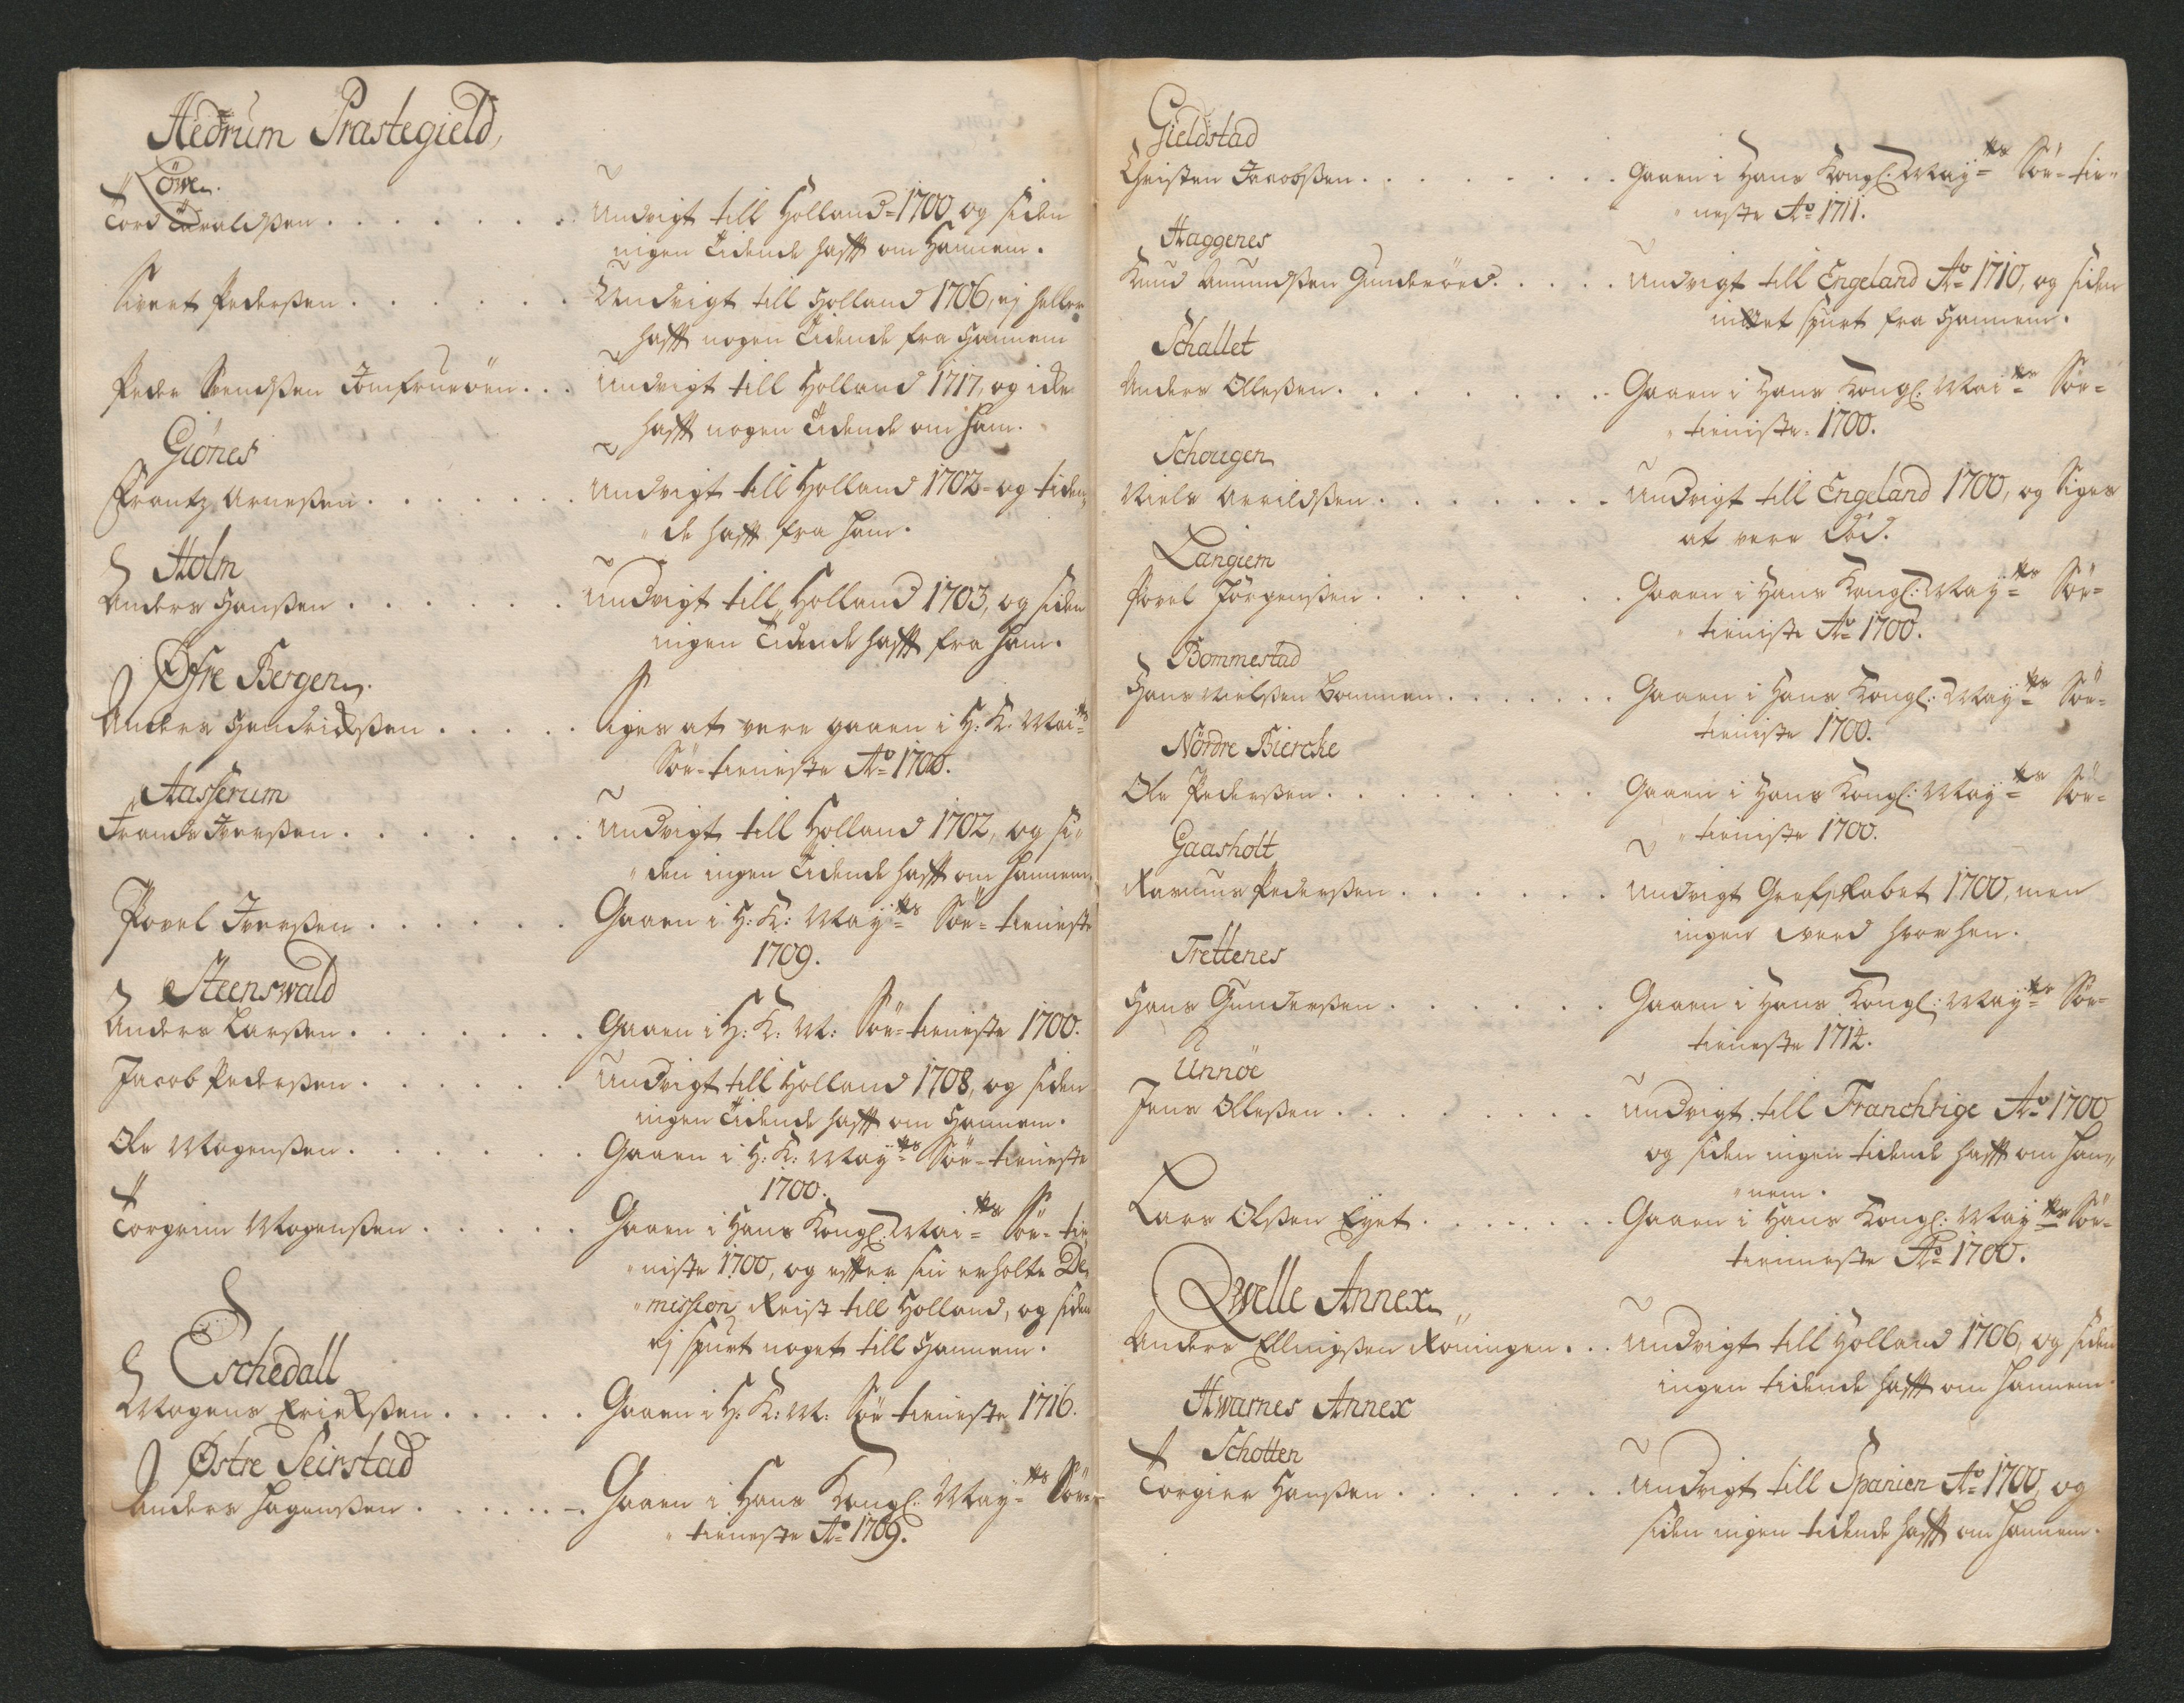 Hedrum Præstegield,
Löwe.
Tord Taraldßen . . . . . . . Undvigt till Holland 1700 og siden
ingen Tidende hafft om Hannem.
Sivert Pederßen . . . . . . Undvigt till Holland 1706, ej heller
hafft nogen Tidende fra Hannem
Peder Svendßen Jomfrueöen . . . Undvigt till Holland 1717, og icke
hafft nogen Tidende om ham.
Giönes
Frantz Arneßen . . . . . . . Undvigt till Holland 1702 og tiden„
„de hafft fra ham.
Holm
Anders Hanßen . . . . . . Undvigt till Holland 1703, og siden
ingen Tidende hafft fra ham.
Øfre Bergen.
Anders Hendrichßen . . . . . Siges at vere gaaen i H: K. Mai=ts
Söe=tieneste Ao 1700.
Aasserum
Frands Iverßen . . . . . . . Undvigt till Holland 1702, og si„
„den ingen Tidende hafft om hannem.
Povel Iverßen . . . . . . Gaaen i H: K: May=ts Söe=tieneste
1709.
Steenswald
Anders Larßen . . . . . . . Gaaen i H: K: M: Söe=tieneste 1700.
Jacob Pederßen . . . . . . Undvigt till Holland 1708, og siden
ingen Tidende hafft om Hannem.
Ole Mogenßen . . . . . . . Gaaen i H: K: May=ts Söe=tieneste
1700.
Torgrim Mogenßen . . . . . Gaaen i Hans Kongl: Mai=ts Söe=tie„
„niste 1700, og effter sin erholte De„
„mission Reist till Holland, og siden
ej spurt noget till Hannem.
Eschedall
Mogens Erichßen . . . . . Gaaen i H: K: M: Söe tieneste 1716.
Østre Seirstad
Anders Hagenßen . . . . . . Gaaen i Hans Kongl: May=ts Söe=
„tieneste Ao 1709.
Gieldstad
Christen Jacobßen . . . . . . . . Gaaen i Hans Kongl: May=ts Söe=tie„
„neste Ao 1711.
Haggenes
Knud Amundßen Gunderöed . . . . . Undvigt till Engeland Ao 1710, og siden
intet spurt fra Hannem.
Schallet
Anders Olleßen . . . . . . . . Gaaen i Hans Kongl: Mai=ts Söe=
„tieniste 1700.
Schougen
Niels Arvildßen . . . . . . . Undvigt till Engeland 1700, og Siges
at vere död.
Langiem
Povel Jörgenßen . . . . . . . Gaaen i Hans Kongl: May=ts Söe=
„tieniste Ao 1700.
Bommestad
Hans Nielßen Bommen . . . . . . Gaaen i Hans Kongl: May=ts Söe=
tieniste 1700.
Nördre Biercke
Ole Pederßen . . . . . . . . Gaaen i Hans Kongl: May=ts Söe=
„tieniste 1700.
Gaasholt
Rasmus Pederßen . . . . . . . Undvigt Grefskabet 1700, men
ingen veed hvor hen.
Trettenes
Hans Gunderßen . . . . . . . Gaaen i Hans Kongl: May=ts Söe=
tieneste 1714.
Unnöe
Jens Olleßen . . . . . . . . Undvigt till Franchrige Ao 1700
og siden ingen tidende hafft om han„
„nem.
Lars Olßen Eyet . . . . . . . Gaaen i Hans Kongl: May=ts Söe=
tienneste Ao 1700.
Qwelle Annex
Anders Ellingßen Röningen . . . Undvigt till Holland 1706, og siden
ingen tidende hafft om Hannem.
Hwarnes Annex
Schotten
Torgier Hanßen . . . . . . . Undvigt till Spanien Ao 1700, og
siden ingen tidende hafft om hannem.